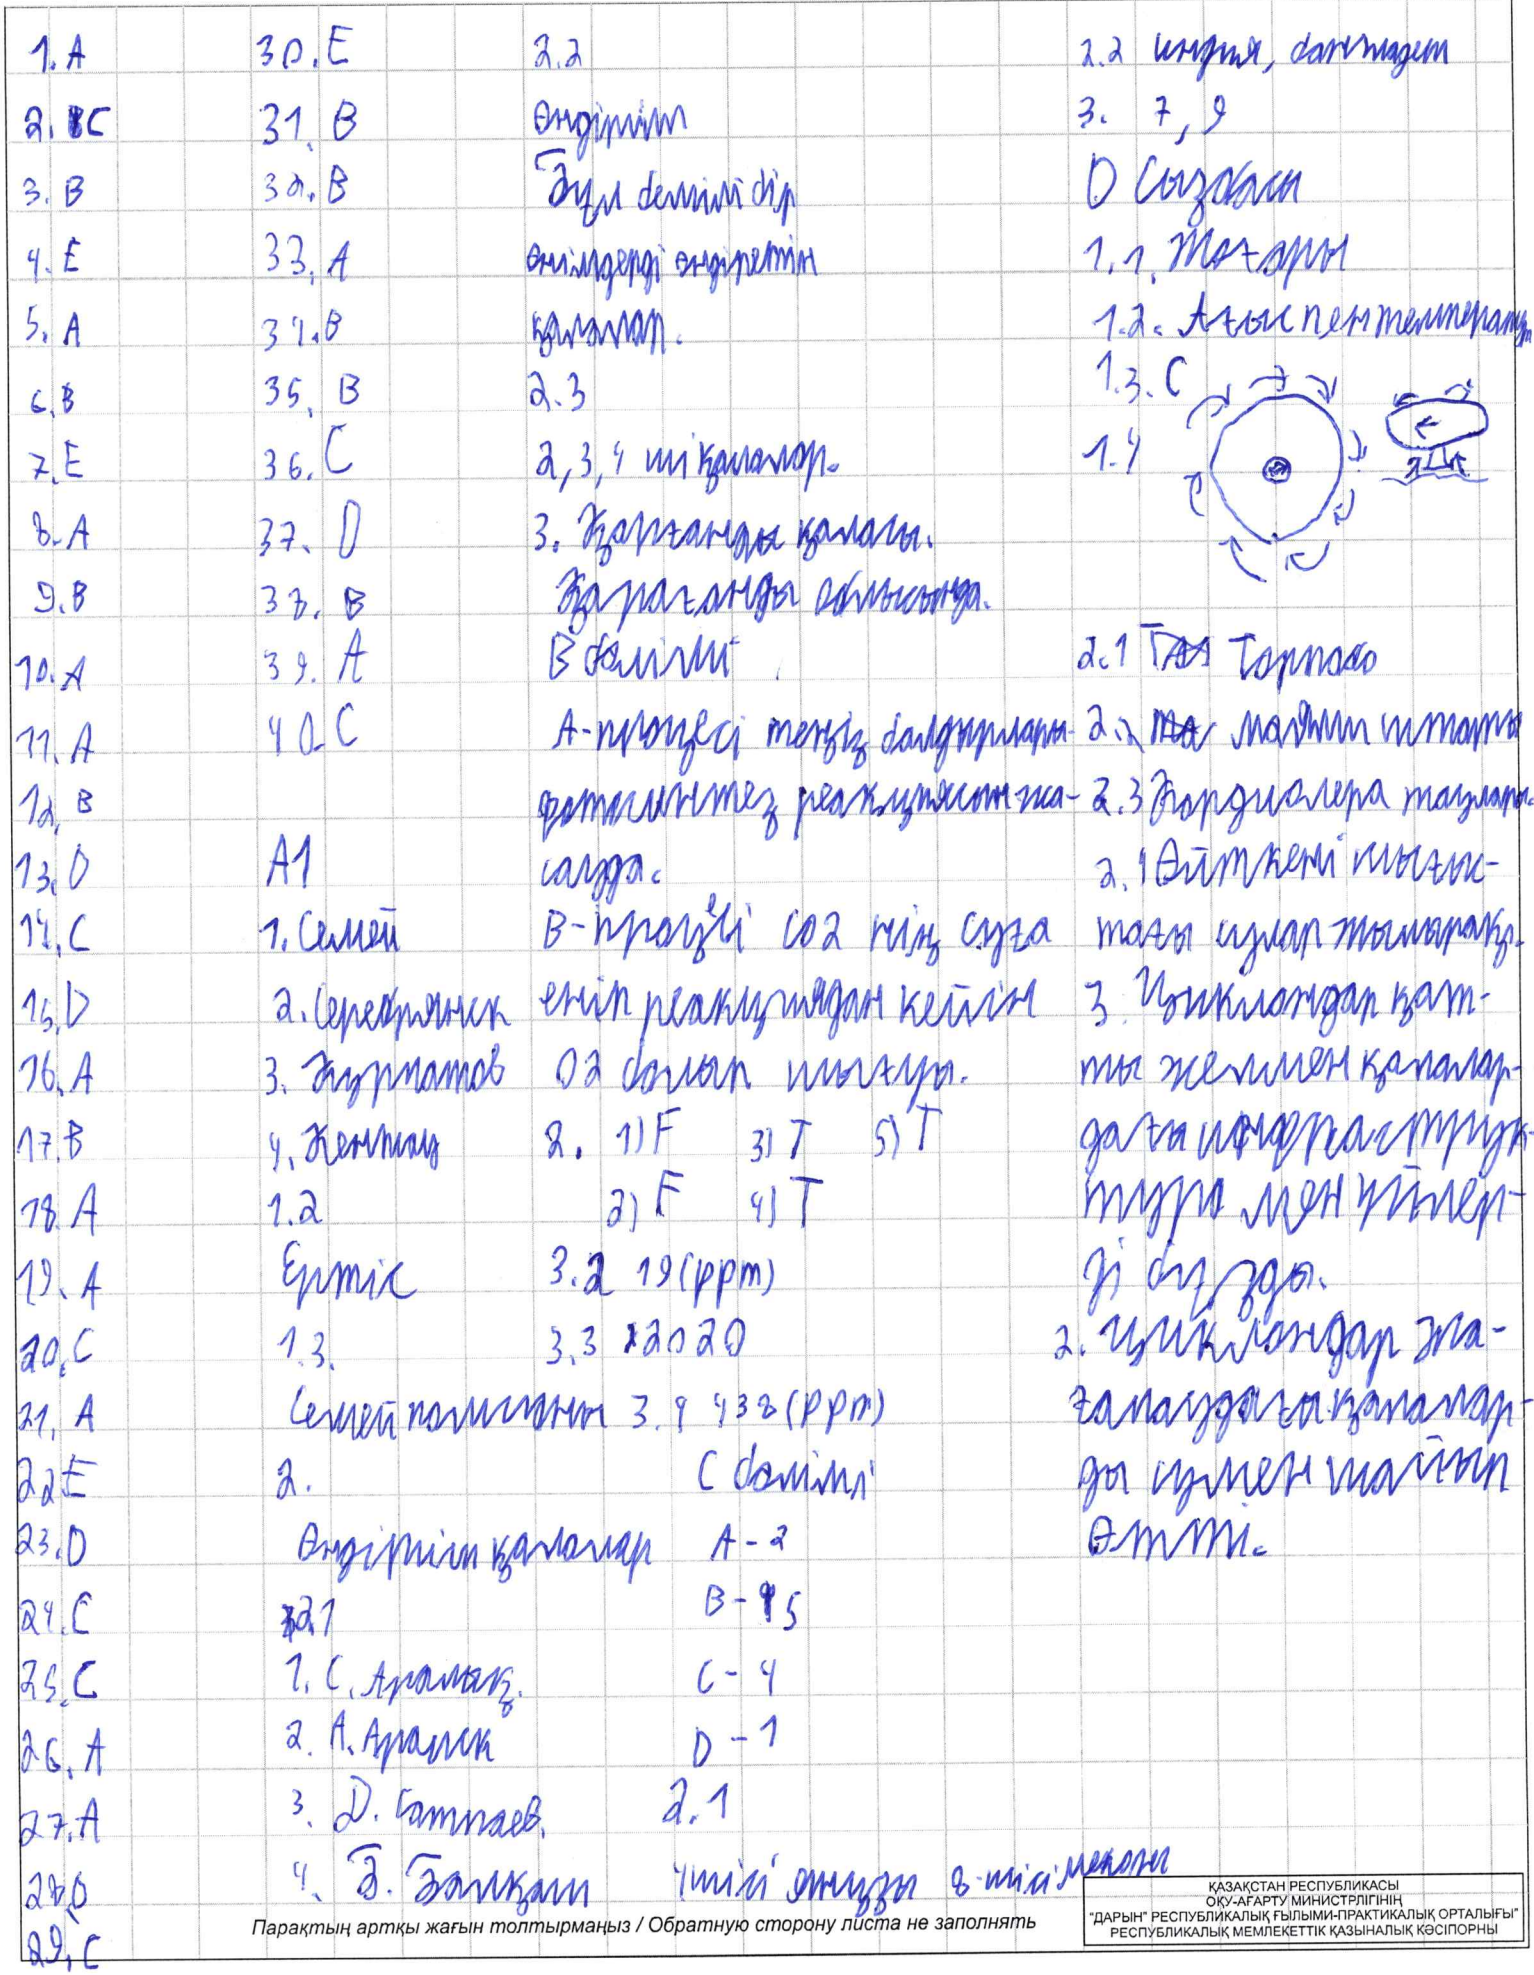 1. A
2. C
3. B
4. E
5. A
6. B
7. E
8. A
9. B
10. A
11. A
12. B
13. D
14. C
15. D
16. A
17. B
18. A
19. A
20. C
21. A
22 E
23. D
24. C
25. C
26. A
27. A
28. D
29. C
30. E
31. B
32. B
33. A
34. B
35. B
36. C
37. D
38. B
39. A
40. C
A1
1. Семей
2. Серебрянск
3. Курчатов
4. Кентау
1.2
Ертіс
1.3.
Семей полигоны
2.
Өндіріс қалалар
2.1
1. С. Арқалық.
2. А. Аральск
3. D. Сатпаев.
4. В. Балқаш
2.2
Өндіріс
Бұл белгілі бір
өнімдерді өндіретін
қалалар.
2.3
2, 3, 4 ші қалалар.
3. Қарағанды қаласы.
Қарағанды облысында.
В бөлімі
А-процесі теңіз балдырлары
фотосинтез реакциясын жа-
сауда.
В-процесі CO2 нің суға
еніп реакциядан кейін
O2 болып шығуы.
2. 1) F 3) T 5) T
2) F 4) T
3.2 19 (ppm)
3.3 2020
3.4 438 (ppm)
С бөлімі
A - 2
B - 5
C - 4
D - 1
2.1
4шісі 8-шісі
2.2 Индия, бангладеш
3. 7, 9
D Сызбасы
1.1. Жоғары
1.2. Ағыс пен температура
1.3. C
1.4
2.1 Торнадо
2.2 штаты
2.3 Кордильера таулары.
2.4 Өйткені шығыс-
тағы сулар жылырақ.
3. Циклондар қат-
ты желмен қалалар-
дағы инфраструк-
тура мен үйлер-
ді бұзды.
2. Циклондар жа-
ғалаудағы қалалар-
ды сумен шайып
өтті.
Парақтың артқы жағын толтырмаңыз / Обратную сторону листа не заполнять
ҚАЗАҚСТАН РЕСПУБЛИКАСЫ
ОҚУ-АҒАРТУ МИНИСТРЛІГІНІҢ
"ДАРЫН" РЕСПУБЛИКАЛЫҚ ҒЫЛЫМИ-ПРАКТИКАЛЫҚ ОРТАЛЫҒЫ"
РЕСПУБЛИКАЛЫҚ МЕМЛЕКЕТТІК ҚАЗЫНАЛЫҚ КӘСІПОРНЫ